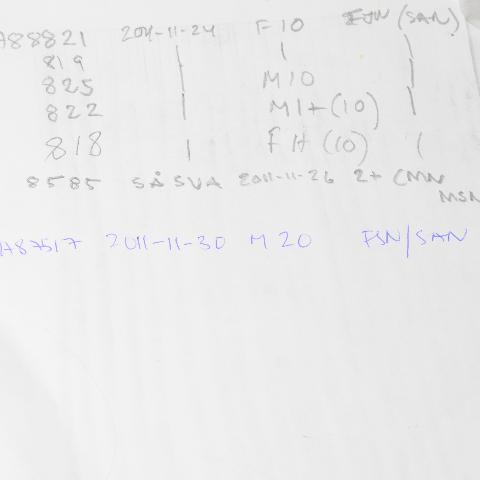 A88821 2011-11-24 F 10 FJN (SAN)
819 | | |
825 | M10
822 | M1+(10) |
818 | F1+(10) |
8585 SÅ SVA 2011-11-26 2+ CMN
MSN
A87517 2011-11-30 M 20 FSN/SAN